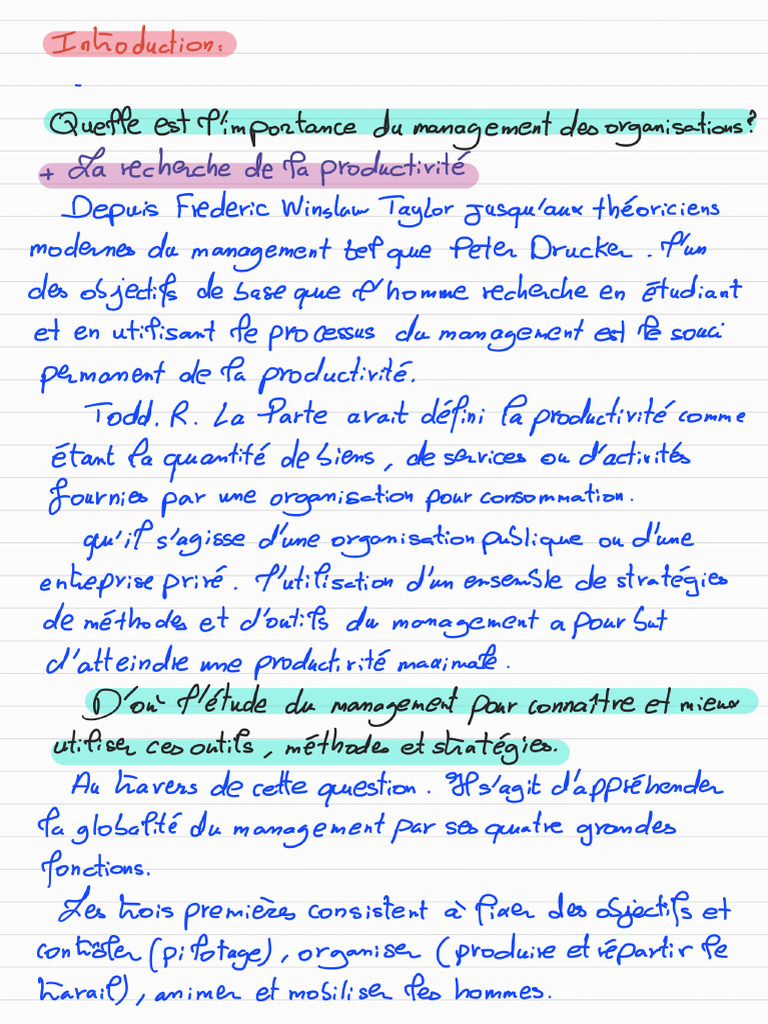 Introduction:
-
Quelle est l'importance du management des organisations?
+ La recherche de la productivité
Depuis Frederic Winslaw Taylor jusqu'aux théoriciens
modernes du management tel que Peter Drucker. l'un
des objectifs de base que l'homme recherche en étudiant
et en utilisant le processus du management est le souci
permanent de la productivité.
Todd. R. La Parte avait défini la productivité comme
étant la quantité de biens, de services ou d'activités
fournies par une organisation pour consommation.
qu'il s'agisse d'une organisation publique ou d'une
entreprise privé. l'utilisation d'un ensemble de stratégies
de méthodes et d'outils du management a pour but
d'atteindre une productivité maximale.
D'où l'étude du management pour connaître et mieux
utiliser ces outils, méthodes et stratégies.
Au travers de cette question. Il s'agit d'appréhender
la globalité du management par ses quatre grandes
fonctions.
Les trois premières consistent à fixer des objectifs et
contrôler (pilotage), organiser (produire et répartir le
travail), animer et mobiliser les hommes.